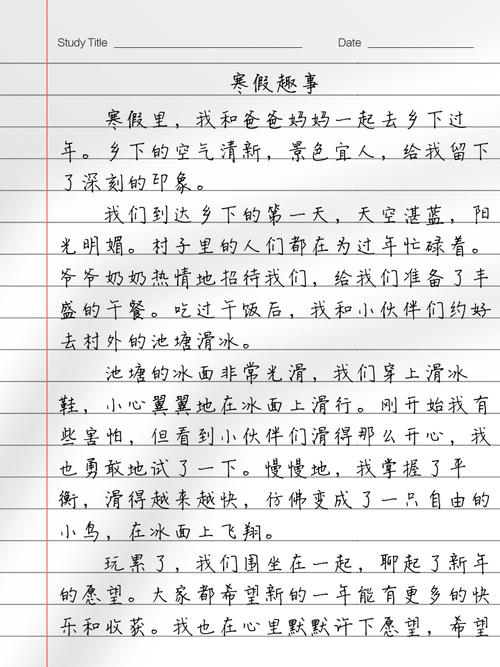 Study Title
Date
寒假趣事
寒假里，我和爸爸妈妈一起去乡下过
年。乡下的空气清新，景色宜人，给我留下
了深刻的印象。
我们到达乡下的第一天，天空湛蓝，阳
光明媚。村子里的人们都在为过年忙碌着。
爷爷奶奶热情地招待我们，给我们准备了丰
盛的午餐。吃过午饭后，我和小伙伴们约好
去村外的池塘滑冰。
池塘的冰面非常光滑，我们穿上滑冰
鞋，小心翼翼地在冰面上滑行。刚开始我有
些害怕，但看到小伙伴们滑得那么开心，我
也勇敢地试了一下。慢慢地，我掌握了平
衡，滑得越来越快，仿佛变成了一只自由的
小鸟，在冰面上飞翔。
玩累了，我们围坐在一起，聊起了新年
的愿望。大家都希望新的一年能有更多的快
乐和收获。我也在心里默默许下愿望，希望